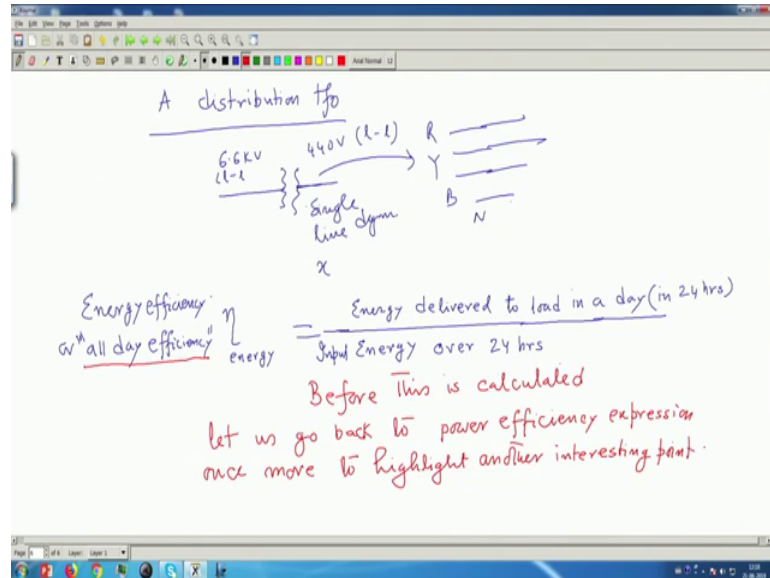 Journal
File Edit View Page Tools Options Help
Arial Normal 12
A distribution tfo
6.6KV
(l-l
440V (l-l)
R
Y
B
N
Single
line dgm
x
Energy efficiency
or "all day efficiency"
η energy = Energy delivered to load in a day (in 24 hrs)
Input Energy over 24 hrs
Before This is calculated
let us go back to power efficiency expression
once more to highlight another interesting point.
Page 6 of 6 Layer: Layer 1